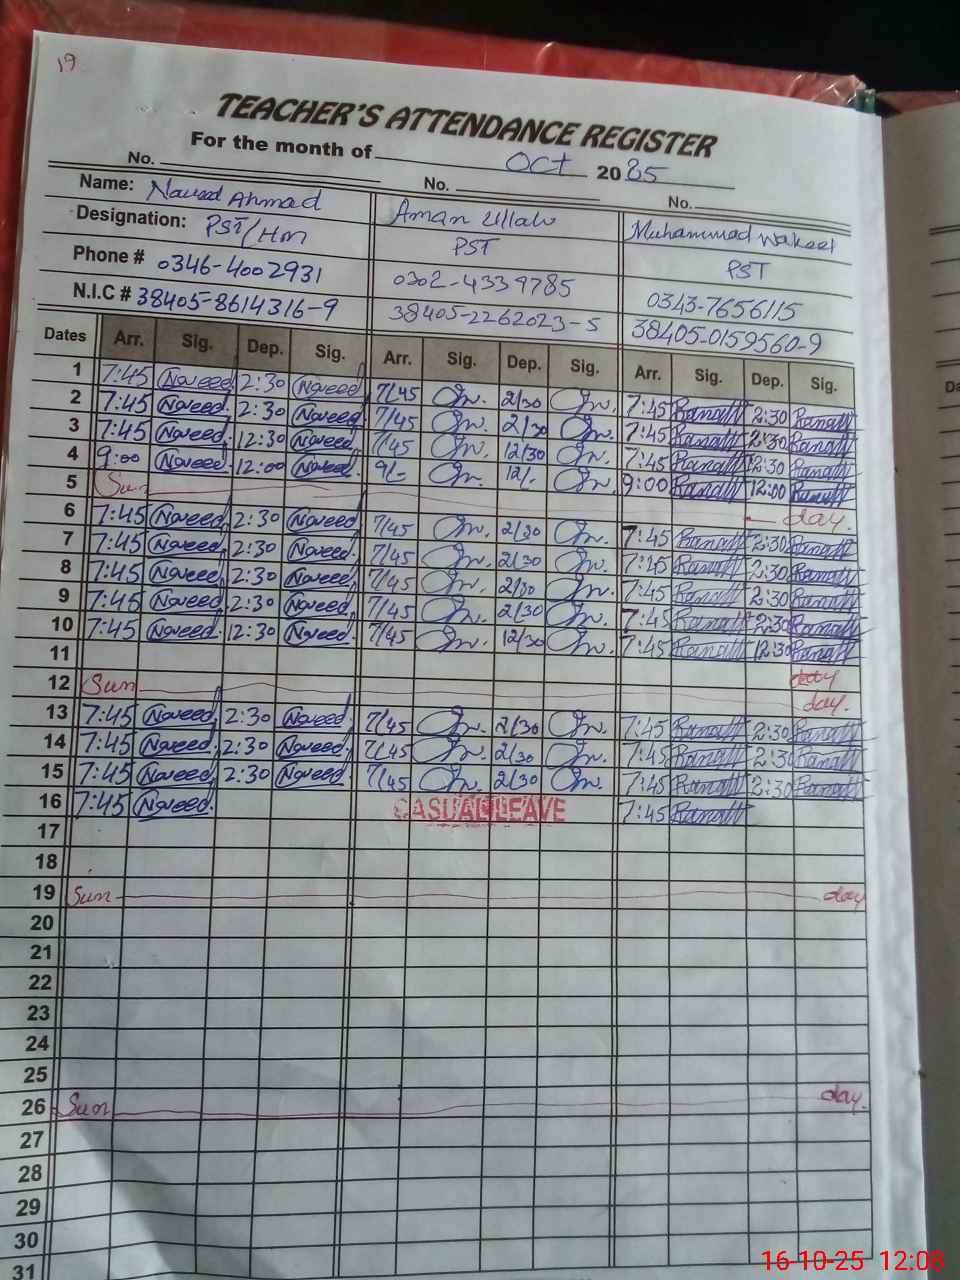 19
TEACHER'S ATTENDANCE REGISTER
For the month of Oct 2025
No. No. No.
Name: Naveed Ahmad Aman Ullah Muhammad Wakeel
Designation: PST/HM PST PST
Phone # 0346-4002931 0302-4339785 0343-7656115
N.I.C # 38405-8614316-9 38405-2262023-5 38405-0159560-9
Dates Arr. Sig. Dep. Sig. Arr. Sig. Dep. Sig. Arr. Sig. Dep. Sig.
1 7:45 Naveed 2:30 Naveed 7/45 2/30 7:45 2:30
2 7:45 Naveed 2:30 Naveed 7/45 2/30 7:45 2:30
3 7:45 Naveed 12:30 Naveed 7/45 12/30 7:45 12:30
4 9:00 Naveed 12:00 Naveed 9/- 12/- 9:00 12:00
5 Sun day.
6 7:45 Naveed 2:30 Naveed 7/45 2/30 7:45 2:30
7 7:45 Naveed 2:30 Naveed 7/45 2/30 7:45 2:30
8 7:45 Naveed 2:30 Naveed 7/45 2/30 7:45 2:30
9 7:45 Naveed 2:30 Naveed 7/45 2/30 7:45 2:30
10 7:45 Naveed 12:30 Naveed 7/45 12/30 7:45 12:30
11
12 Sun day.
13 7:45 Naveed 2:30 Naveed 7/45 2/30 7:45 2:30
14 7:45 Naveed 2:30 Naveed 7/45 2/30 7:45 2:30
15 7:45 Naveed 2:30 Naveed 7/45 2/30 7:45 2:30
16 7:45 Naveed CASUAL LEAVE 7:45
17
18
19 Sun day
20
21
22
23
24
25
26 Sun day.
27
28
29
30
31
16-10-25 12:08